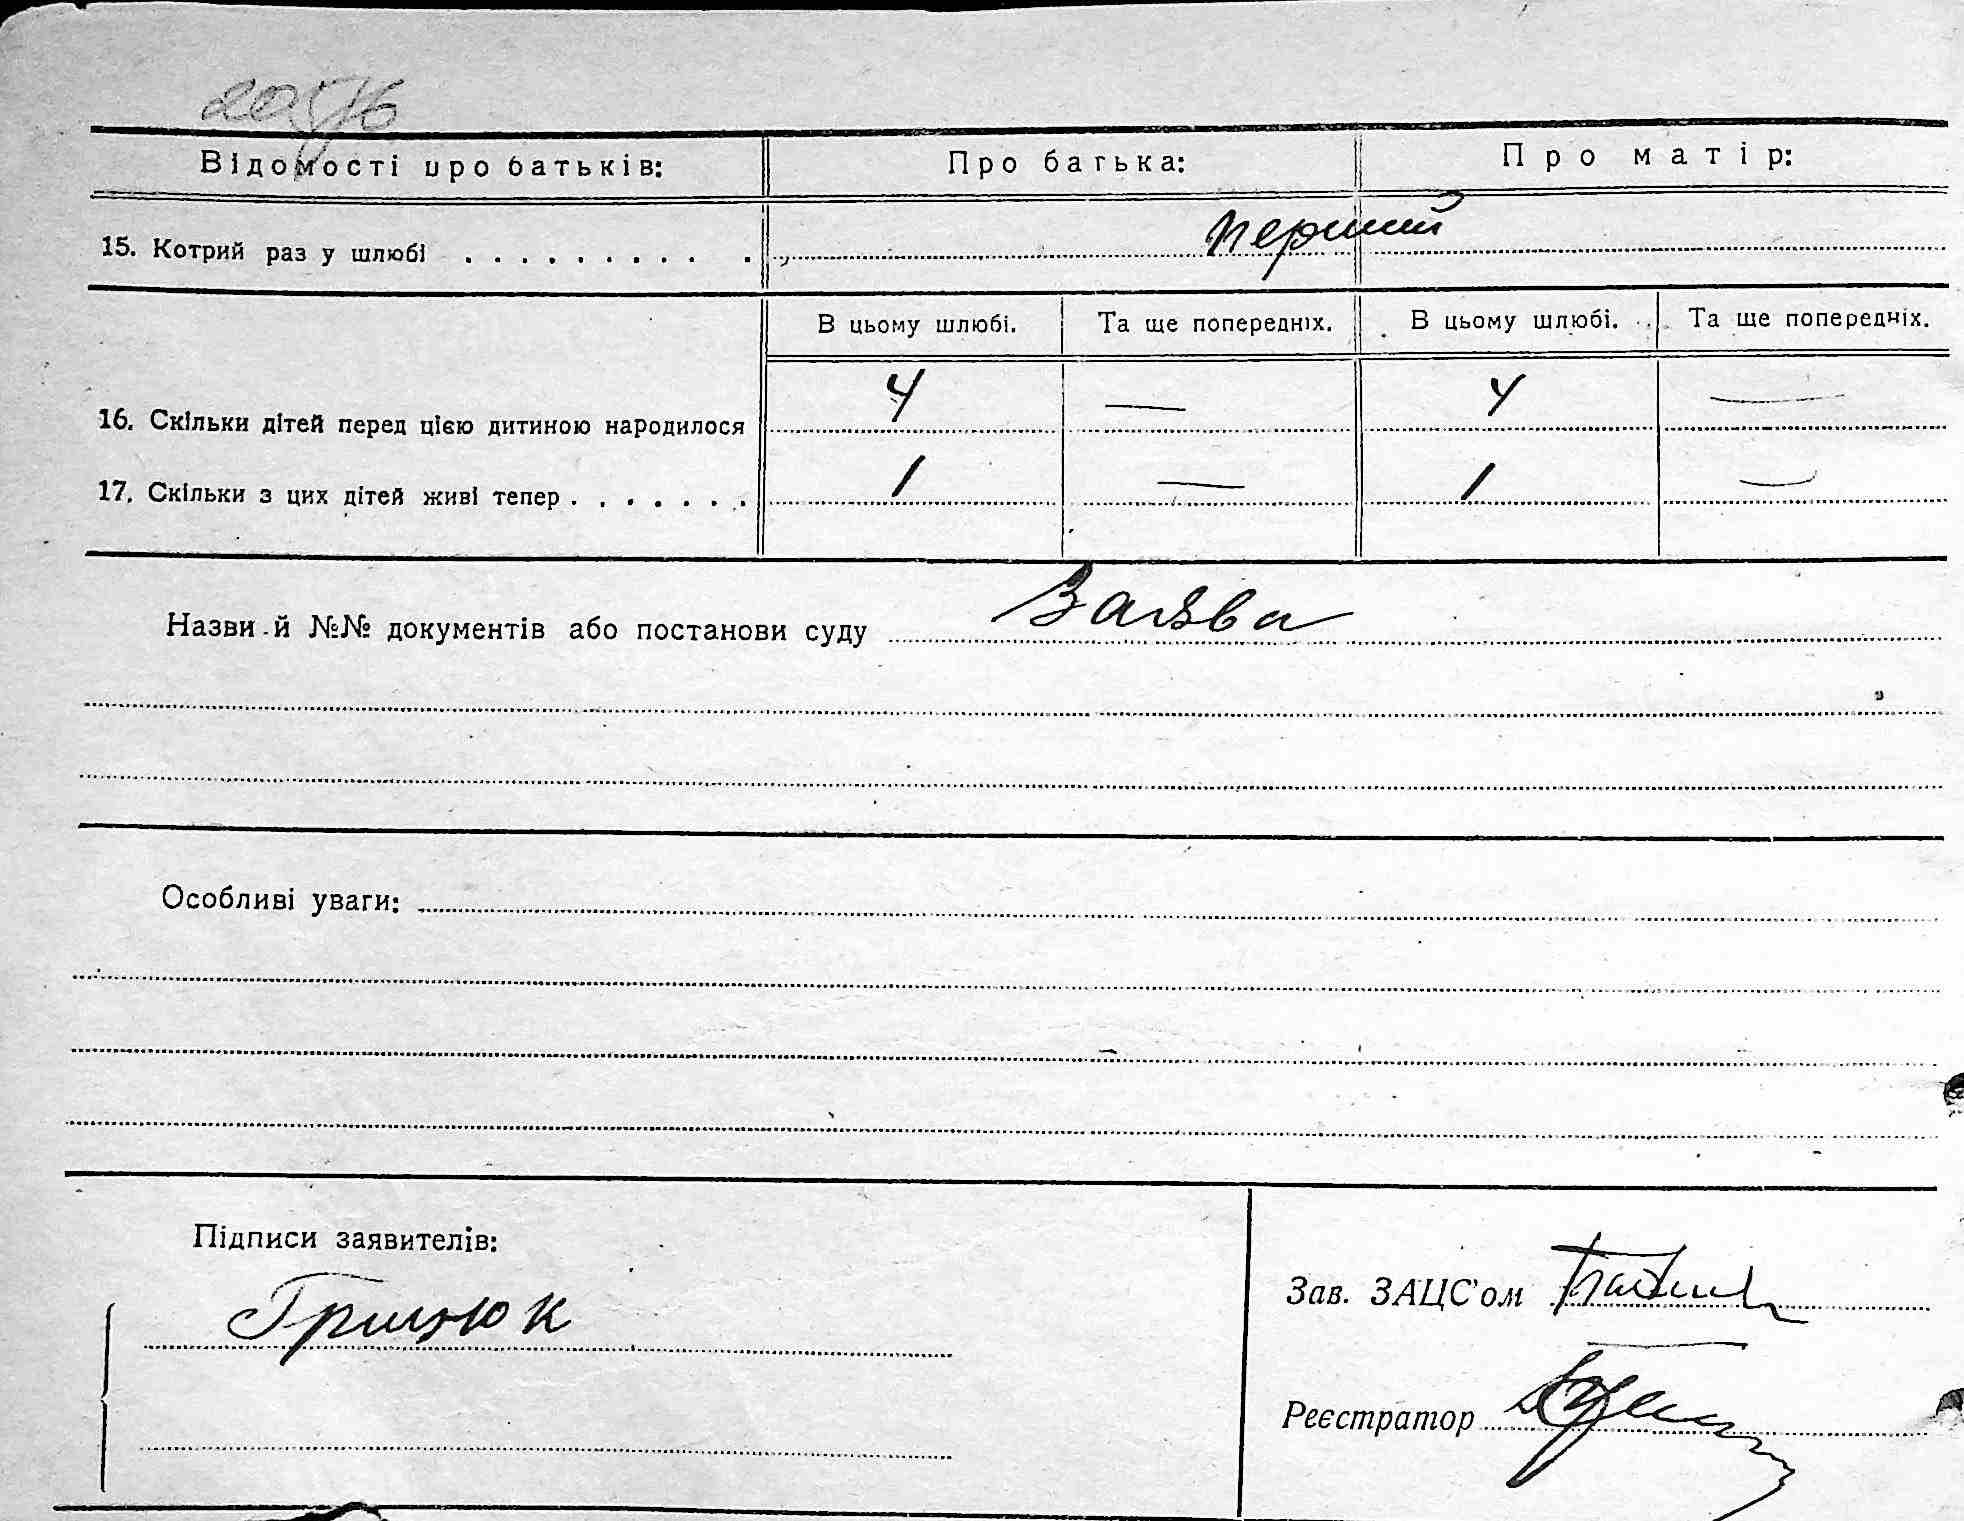 Відомості про батьків: Про батька: Про матір:
15. Котрий раз у шлюбі . . . . . . . . . . . перший
В цьому шлюбі. Та ще попередніх. В цьому шлюбі. Та ще попередніх.
16. Скільки дітей перед цією дитиною народилося 4 — 4 —
17. Скільки з цих дітей живі тепер . . . . . . . 1 — 1 —
Назви й №№ документів або постанови суду Заява
Особливі уваги:
Підписи заявителів:
Грицюк
Зав. ЗАЦС'ом
Реєстратор